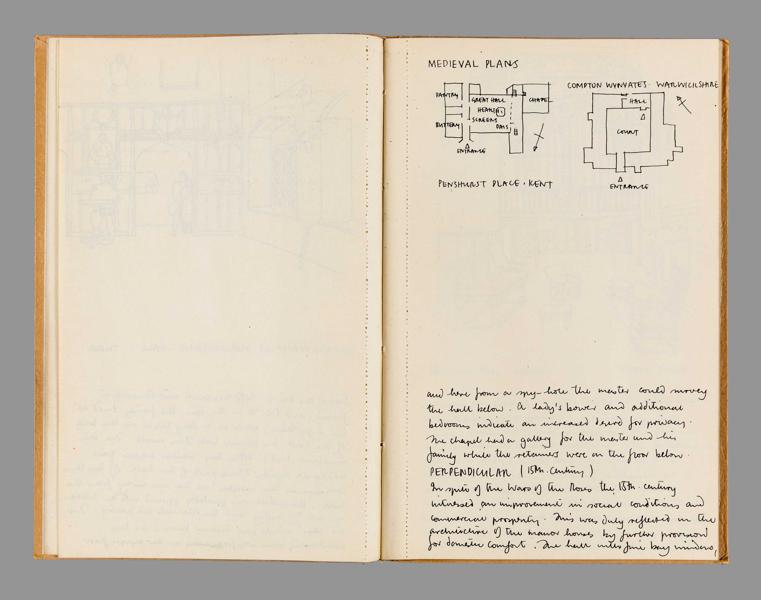 MEDIEVAL PLANS
PANTRY
GREAT HALL
HEARTH
SCREENS
DAIS
BUTTERY
CHAPEL
ENTRANCE
PENSHURST PLACE · KENT
COMPTON WYNYATES · WARWICKSHIRE
HALL
COURT
ENTRANCE
and here from a spy-hole the master could survey
the hall below. A lady's bower and additional
bedrooms indicate an increased desire for privacy.
The chapel had a gallery for the master and his
family while the retainers were on the floor below.
PERPENDICULAR (15th. Century)
In spite of the Wars of the Roses the 15th. century
witnessed an improvement in social conditions and
commercial prosperity. This was duly reflected in the
architecture of the manor houses by further provision
for domestic comfort. The hall with fine bay windows,